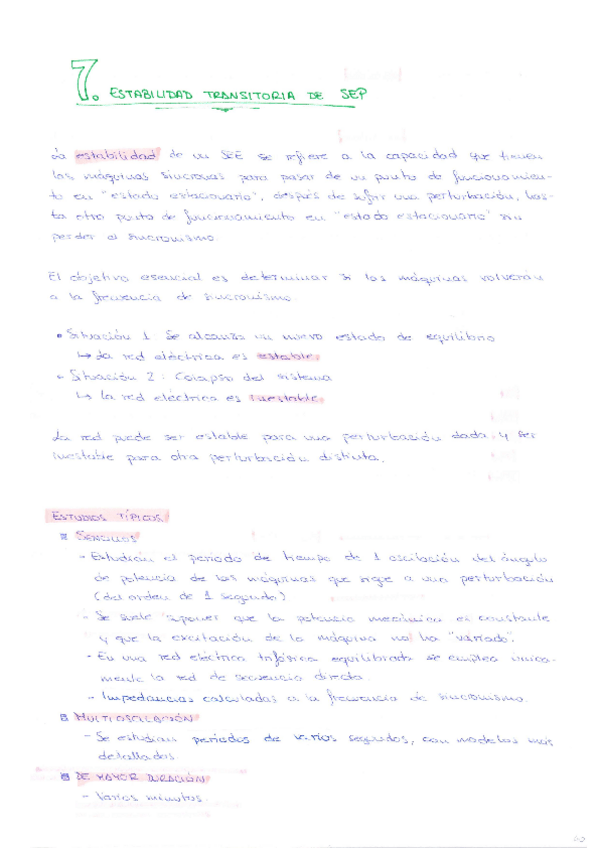 7. ESTABILIDAD TRANSITORIA DE SEP
La estabilidad de un SEE se refiere a la capacidad que tienen
las máquinas síncronas para pasar de un punto de funcionamien-
to en "estado estacionario", después de sufrir una perturbación, has-
ta otro punto de funcionamiento en "estado estacionario" sin
perder el sincronismo.
El objetivo esencial es determinar si las máquinas volverán
a la frecuencia de sincronismo.
• Situación 1: Se alcanza un nuevo estado de equilibrio
↳ La red eléctrica es estable.
• Situación 2: Colapso del sistema
↳ La red eléctrica es inestable.
La red puede ser estable para una perturbación dada y ser
inestable para otra perturbación distinta.
ESTUDIOS TÍPICOS
SENCILLOS
- Estudian el periodo de tiempo de 1 oscilación del ángulo
de potencia de las máquinas que sigue a una perturbación
(del orden de 1 segundo)
- Se suele suponer que la potencia mecánica es constante
y que la excitación de la máquina no ha "variado".
- En una red eléctrica trifásica equilibrada se emplea única-
mente la red de secuencia directa.
- Impedancias calculadas a la frecuencia de sincronismo.
MULTIOSCILACIÓN
- Se estudian periodos de varios segundos, con modelos más
detallados.
DE MAYOR DURACIÓN
- Varios minutos.